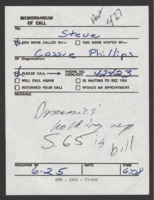 Pat 427
MEMORANDUM
OF CALL
TO:
Steve
YOU WERE CALLED BY— YOU WERE VISITED BY—
Cassie Phillips
OF (Organization)
PLEASE CALL 42423
WILL CALL AGAIN IS WAITING TO SEE YOU
RETURNED YOUR CALL WISHES AN APPOINTMENT
MESSAGE
Domenici
holding up
S. 65 is
bill
RECEIVED BY DATE TIME
6-25 6:28